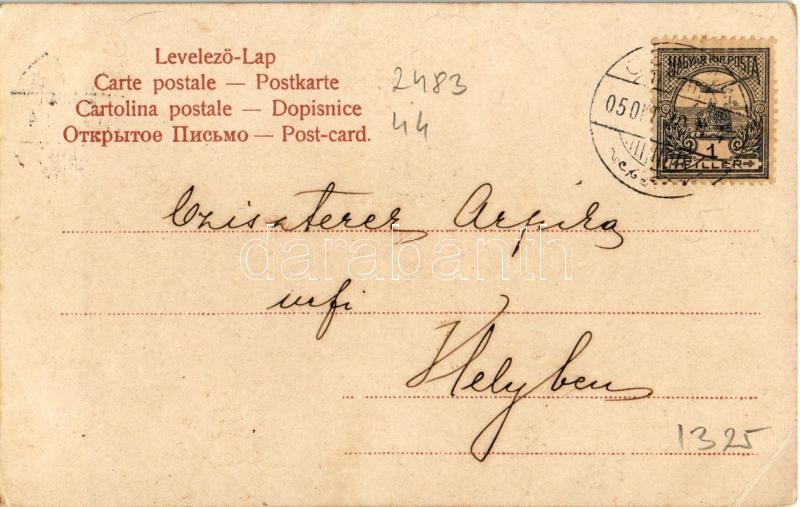 Levelező-Lap
Carte postale — Postkarte
Cartolina postale — Dopisnice
Открытое Письмо — Post-card.
2483
44
MAGYAR KIR. POSTA
1
FILLER
050
Cziszterer
urfi
Helyben
darabanth
1325